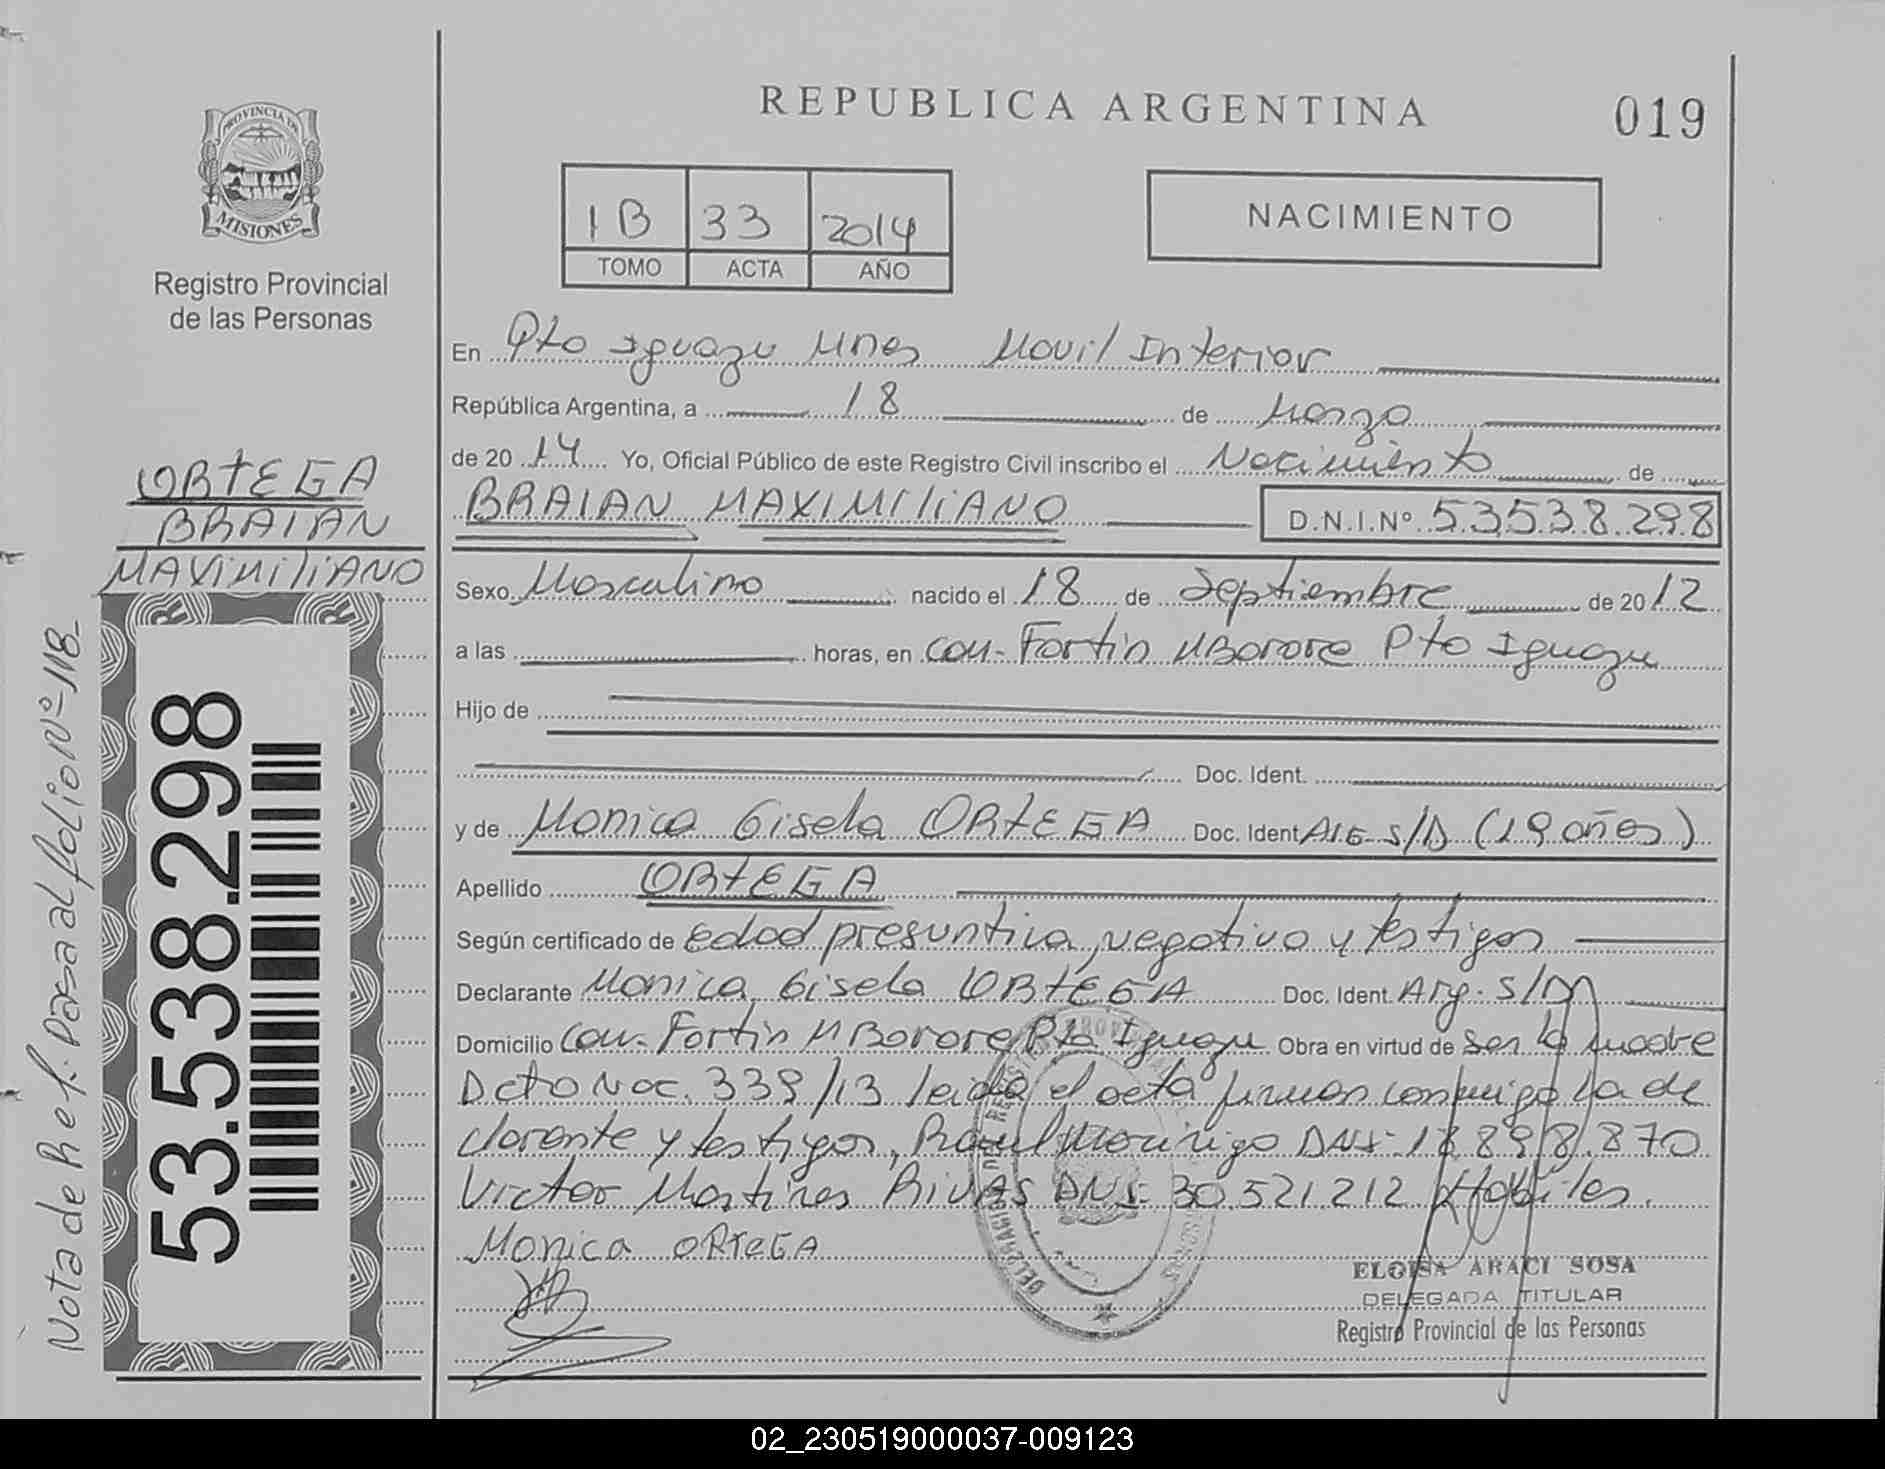 REPUBLICA ARGENTINA
019
PROVINCIA DE
MISIONES
Registro Provincial
de las Personas
1B 33 2014
TOMO ACTA AÑO
NACIMIENTO
En Pto Iguazu Mnes Movil Interior
República Argentina, a 18 de Marzo
de 20 14 Yo, Oficial Público de este Registro Civil inscribo el Nacimiento de
BRAIAN MAXIMILIANO D.N.I.Nº 53538.298
Sexo Masculino nacido el 18 de Septiembre de 20 12
a las horas, en Com- Fortin MBorore Pto Iguazu
Hijo de
Doc. Ident.
y de Monica Gisela ORTEGA Doc. Ident ARG S/D (19 años)
Apellido ORTEGA
Según certificado de Edad presuntiva, negativo y testigos
Declarante Monica Gisela ORTEGA Doc. Ident. Arg. S/D
Domicilio Com- Fortin MBorore Pto Iguazu Obra en virtud de Ser la madre
Dcto Nac. 339/13 leida el acta firman conmigo la de
clarante y testigos, Raul Morinigo DNI- 18.898.870
Victor Martines RIVAS DNI- 30.521.212 Habiles.
MONICA ORTEGA
ELOISA ARACI SOSA
DELEGADA TITULAR
Registro Provincial de las Personas
ORTEGA
BRAIAN
MAXIMILIANO
53.538.298
Nota de Ref. Pasa al folio Nº 118-
02_230519000037-009123